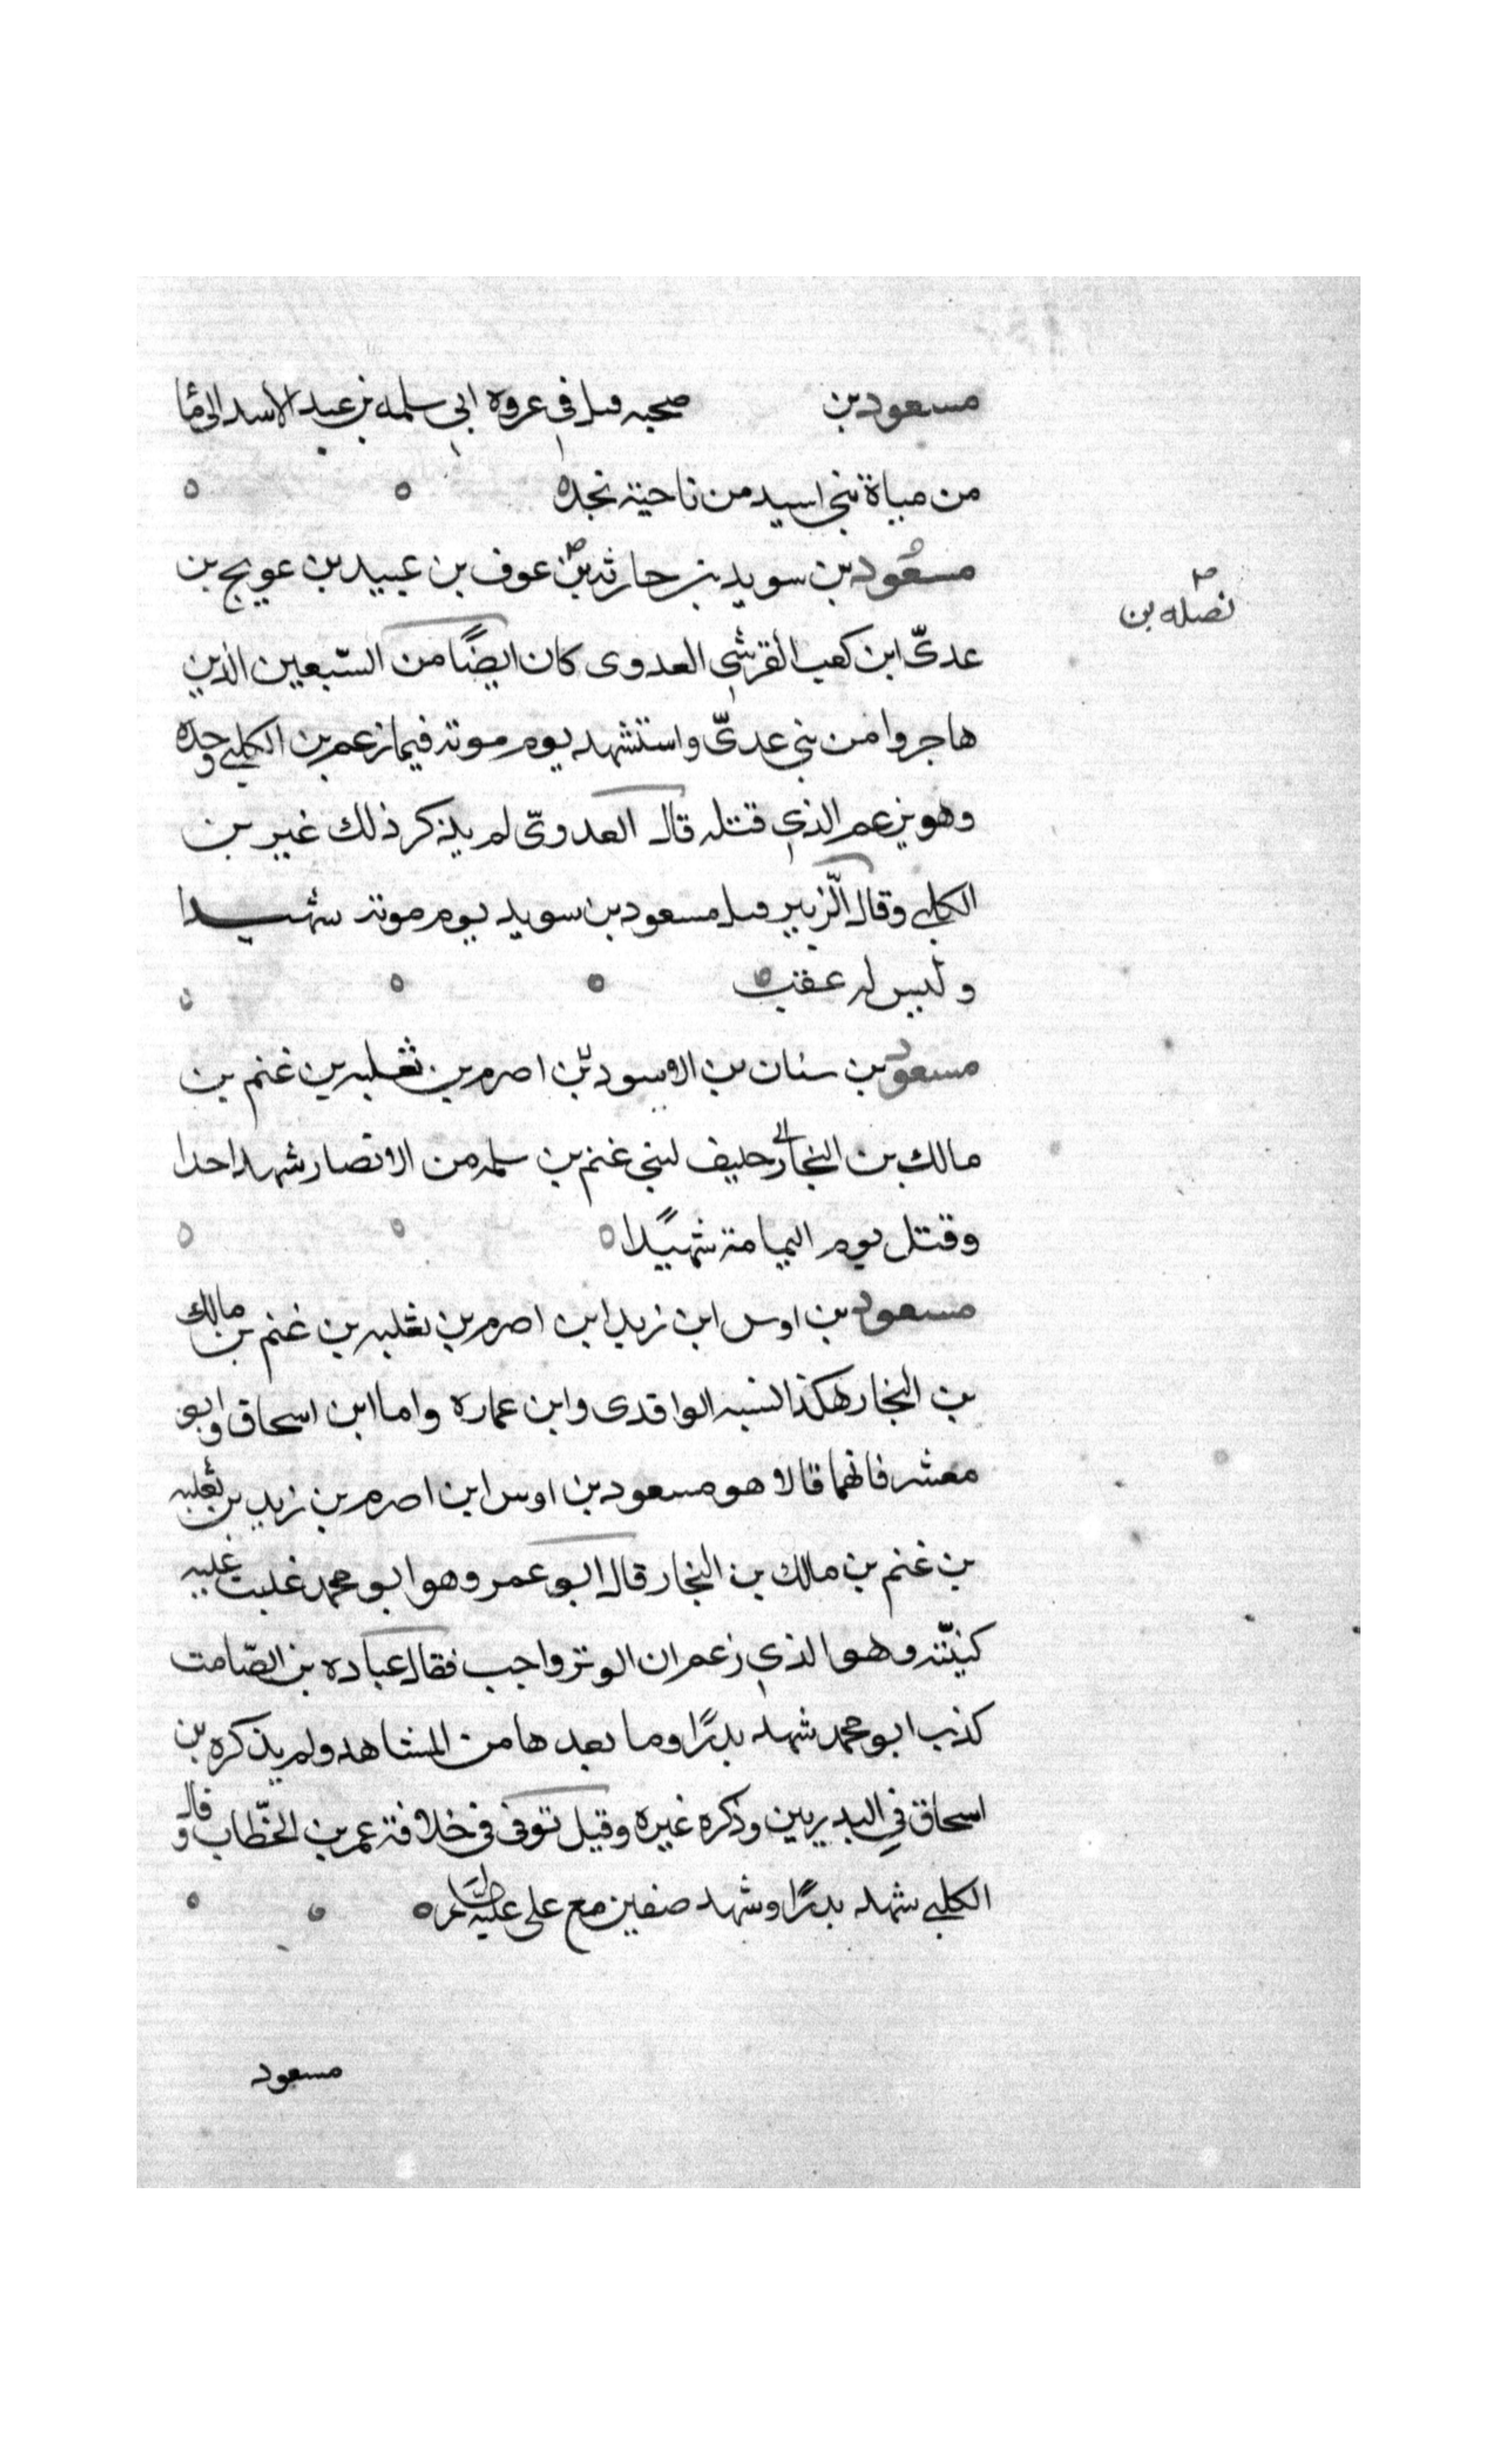 مسعود بن صحبه قىل في غروة ابي سلمه بن عبد الاسد الى ما
من مياة بني اسيد من ناحية نجد
مسعود بن سويد بن حارثه بن عوف بن عبيد بن عويج بن
نضله بن
عدىّ ابن كعب القرشي العدوى كان ايضًا من السّبعين الذين
هاجروا من بني عدىّ واستشهد يوم موته فيما زعم بن الكلبي وحده
وهو يزعم الذي قتله قال العدوىّ لم يذكر ذلك غير بن
الكلبي وقال الّزبير قىل مسعود بن سويد يوم موته شهيدا
وليس له عقب
مسعود بن سنان بن الاسود بن اصرم بن ثعلبه بن غنم بن
مالك بن النجار حليف لبني غنم بن سلمه من الانصار شهد احدا
وقتل يوم اليمامة شهيًدا
مسعود بن اوس ابن زيد ابن اصرم بن ثعلبه بن غنم بن مالك
بن النجار هكذا نسبه الواقدى وابن عماره واما ابن اسحاق وابو
معشر فانهما قالا هو مسعود بن اوس ابن اصرم بن زيد بن ثعلبه
بن غنم بن مالك بن النجار قال ابو عمر وهو ابو محمد غلبت عليه
كنيّته وهو الذي زعم ان الوتر واجب فقال عباده بن الصّامت
كذب ابو محمد شهد بدرًا وما بعدها من المشاهد ولم يذكره بن
اسحاق في البدريين وذكره غيره وقيل توفى فى خلافة عمر بن الخّطاب وقال
الكلبي شهد بدرًا وشهد صفين مع على عليه
مسعود